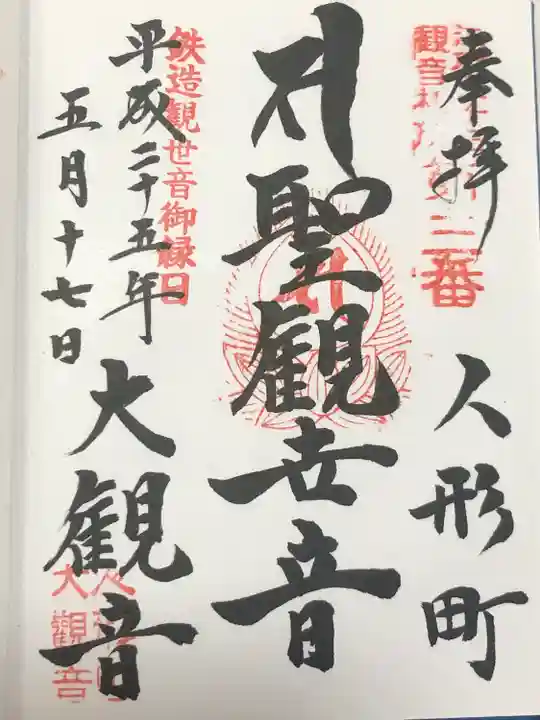 奉拝
人形町
聖観世音
平成二十五年
五月十七日
大観音
鉄造観世音御縁日
大観音